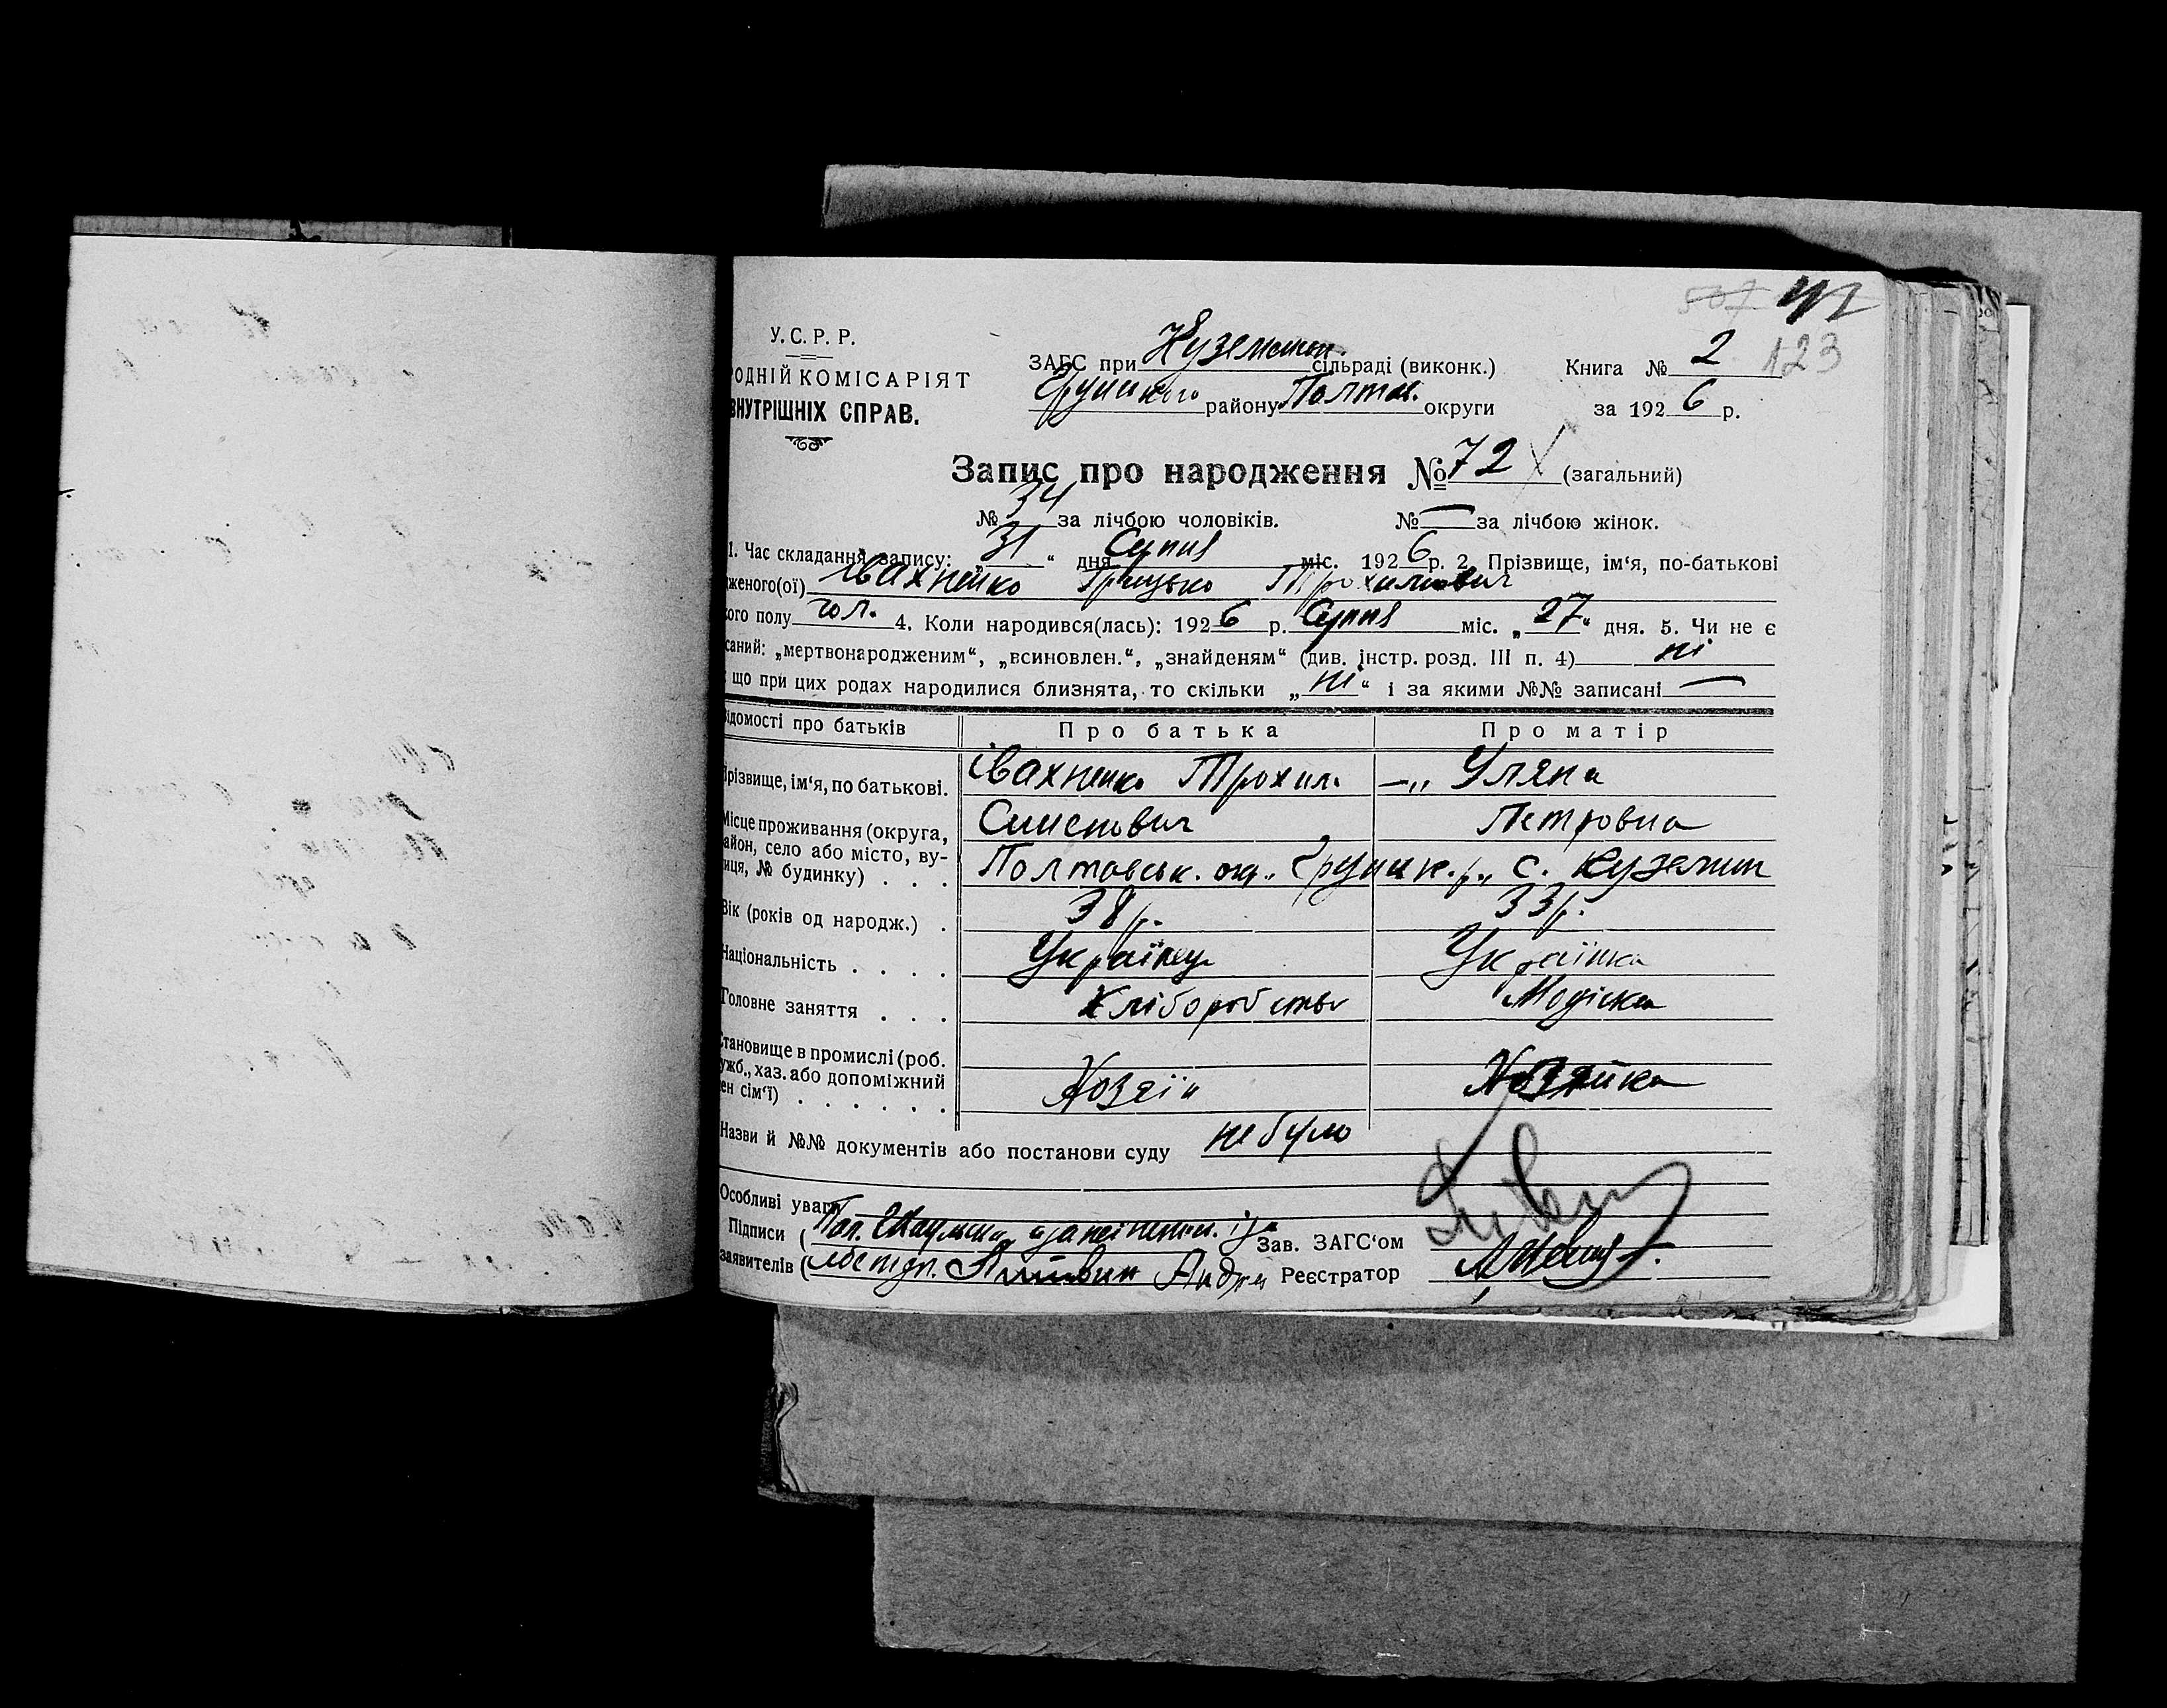 507 42
У. С. Р. Р.
ЗАГС при Куземин. сільраді (виконк.) Книга № 2 123
РОДНІЙ КОМІСАРІЯТ
Грунського району Полтав. округи за 1926 р.
ВНУТРІШНІХ СПРАВ.
Запис про народження № 72 (загальний)
№ 34 за лічбою чоловіків. № — за лічбою жінок.
1. Час складання запису: „31“ дня Серпня міс. 1926 р. 2. Прізвище, ім‘я, по-батькові
женого(ої) Івахненко Грицько Трохимович
ого полу чол. 4. Коли народився(лась): 1926 р. Серпня міс. „27“ дня. 5. Чи не є
саний: „мертвонародженим“, „всиновлен.“, „знайденям“ (див. інстр. розд. III п. 4) ні
що при цих родах народилися близнята, то скільки „ні“ і за якими №№ записані —
ідомості про батьків Про батька Про матір
Прізвище, ім‘я, по батькові. Івахненко Трохим. —„ Уляна
Семенович Петровна
Місце проживання (округа,
айон, село або місто, ву-
иця, № будинку) . . . Полтавськ. окр., Грунськ. р., с. Куземин
Вік (років од народж.) . 38 р. 33 р.
Національність . . . . Українец Українка
Головне заняття . . . Хліборобство
становище в промислі (роб.
ужб., хаз. або допоміжний
ен сім‘ї) . . . . . . Хозяїн Хозяйка
Назви й №№ документів або постанови суду не було
Особливі уваги
Підписи ( Зав. ЗАГС‘ом
заявителів ( Литвин Андрій Реєстратор